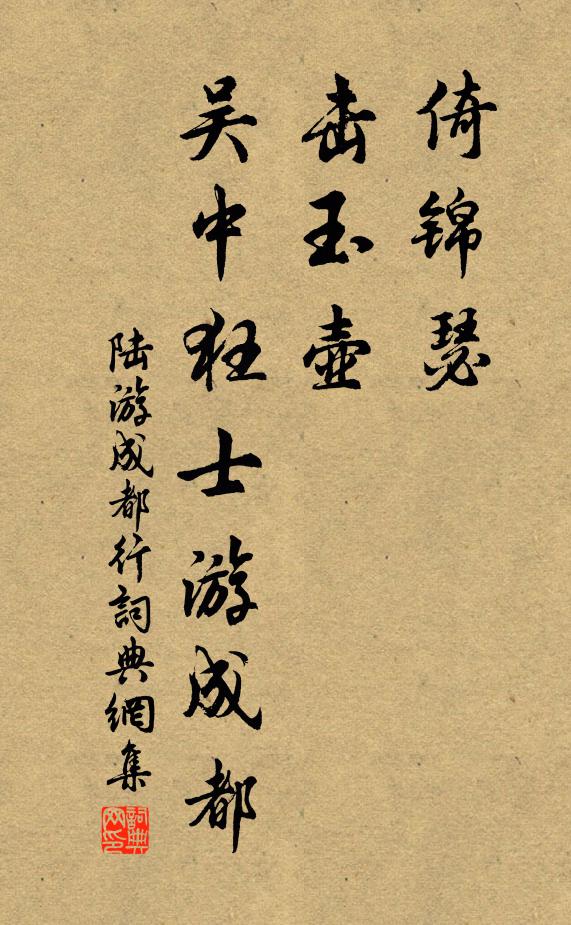 倚锦瑟
击玉壶
吴中狂士游成都
陆游成都行詞典網集
詞典网印